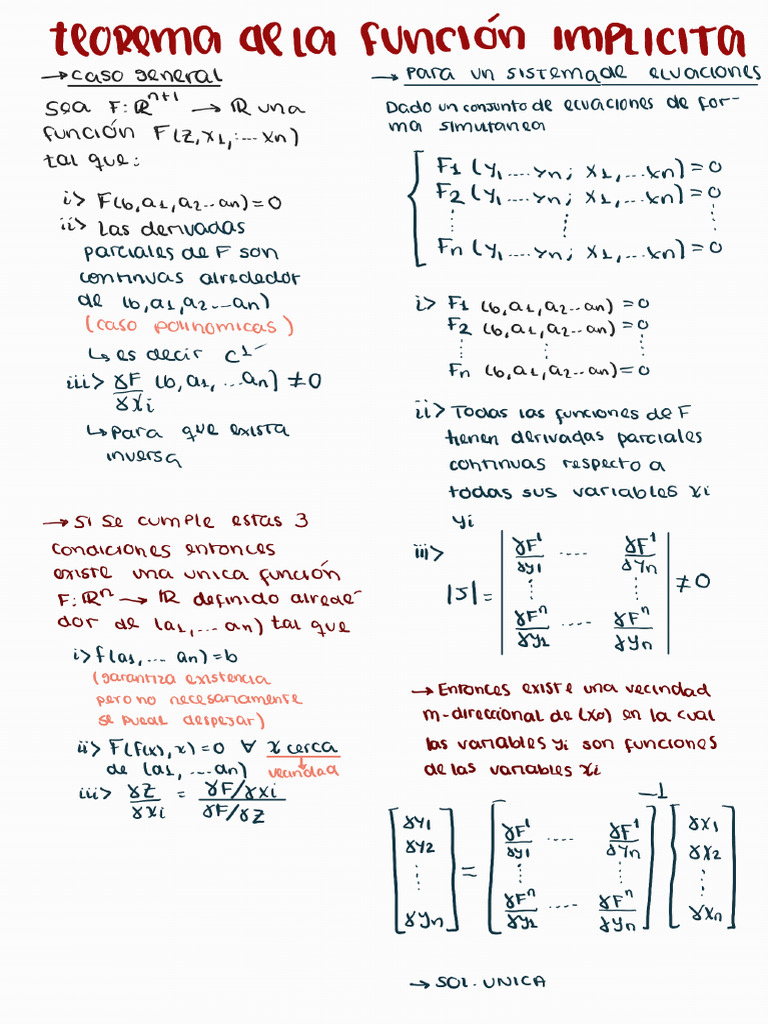 teorema de la función implicita
→ caso general
sea F: ℝⁿ⁺¹ → ℝ una
función F(z, x1, .... xn)
tal que:
i> F(b, a1, a2 .. an) = 0
ii> las derivadas
parciales de F son
continuas alrededor
de (b, a1, a2 .. an)
(caso polinomicas)
↳ es decir C¹
iii> γF/γxi (b, a1, ... an) ≠ 0
↳ para que exista
inversa
→ si se cumple estas 3
condiciones entonces
existe una unica función
F: ℝⁿ → ℝ definido alrede-
dor de (a1, ... an) tal que
i> f(a1, ... an) = b
(garantiza existencia
pero no necesariamente
se puede despejar)
ii> F(f(x), x) = 0 ∀ x cerca
de (a1, ... an) vecindad
iii> γz/γxi = γF/γxi / γF/γz
→ para un sistema de ecuaciones
Dado un conjunto de ecuaciones de for-
ma simutanea
F1 (y1 .... yn; x1, ... xn) = 0
F2 (y1 .... yn; x1, ... xn) = 0
⋮ ⋮ ⋮
Fn (y1 .... yn; x1, ... xn) = 0
i> F1 (b, a1, a2 .. an) = 0
F2 (b, a1, a2 .. an) = 0
⋮ ⋮ ⋮
Fn (b, a1, a2 .. an) = 0
ii> Todas las funciones de F
tienen derivadas parciales
continuas respecto a
todas sus variables xi
yi
iii> |J| = | γF¹/γy1 .... γF¹/γyn |
⋮ ⋮
| γFⁿ/γy1 .... γFⁿ/γyn | ≠ 0
→ Entonces existe una vecindad
m-direccional de (x0) en la cual
las variables yi son funciones
de las variables xi
[γy1 γy2 ⋮ γyn] = [γF¹/γy1 .... γF¹/γyn
⋮ ⋮
γFⁿ/γy1 .... γFⁿ/γyn]⁻¹ [γx1 γx2 ⋮ γxn]
→ SOL. UNICA